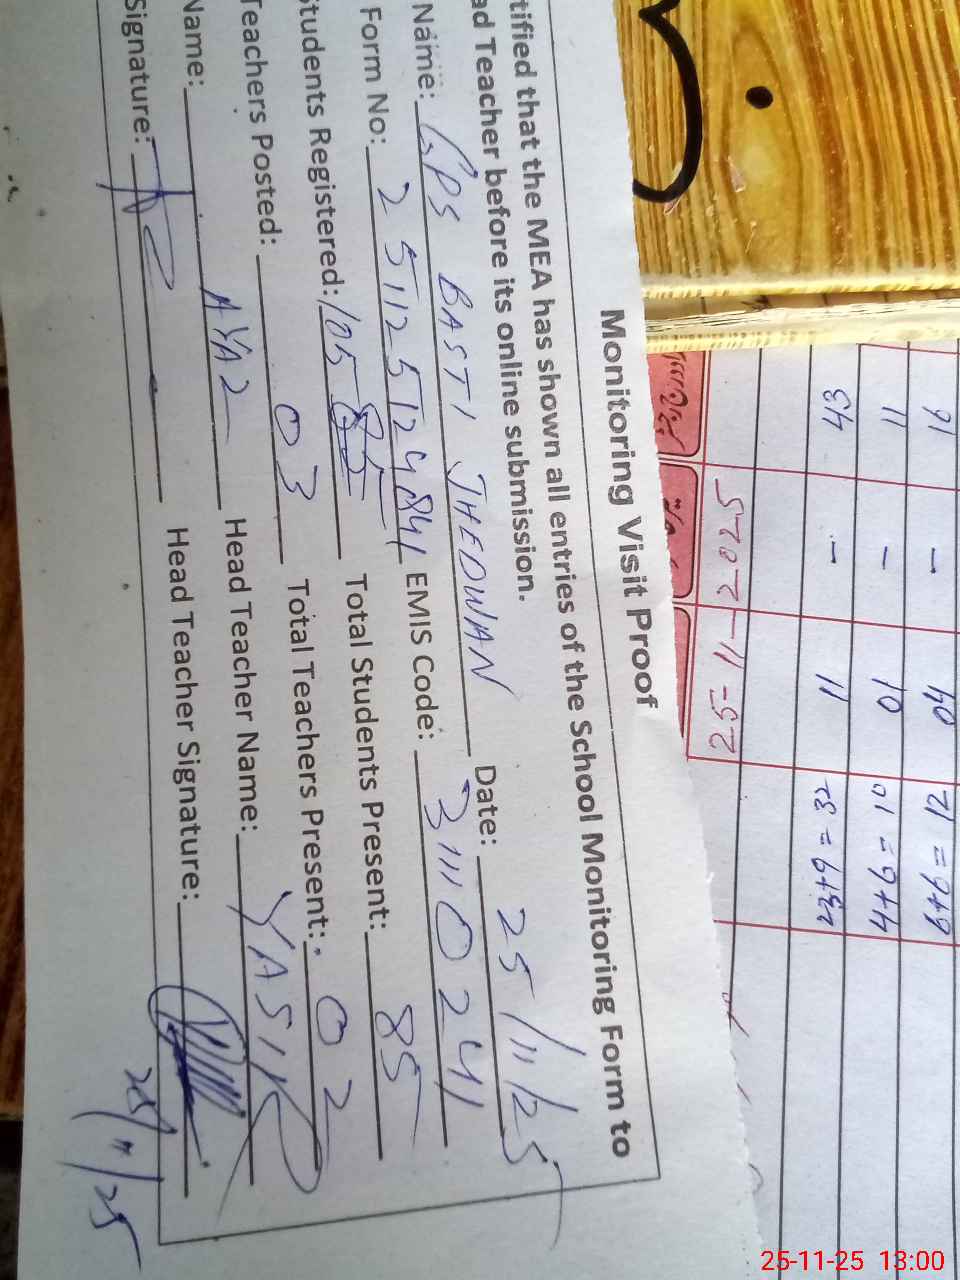 Monitoring Visit Proof
tified that the MEA has shown all entries of the School Monitoring Form to
ad Teacher before its online submission.
Name: GPS BASTI JHEDWAN Date: 25/11/25
Form No: 251125124841 EMIS Code: 31110241
Students Registered: 105 85 Total Students Present: 85
Teachers Posted: 03 Total Teachers Present: 02
Name: Head Teacher Name: YASIR
Signature: Head Teacher Signature:
25/11/25
25-11-2025
16 - 04
11 - 10 4+6=10
43 - 11
25-11-25 13:00